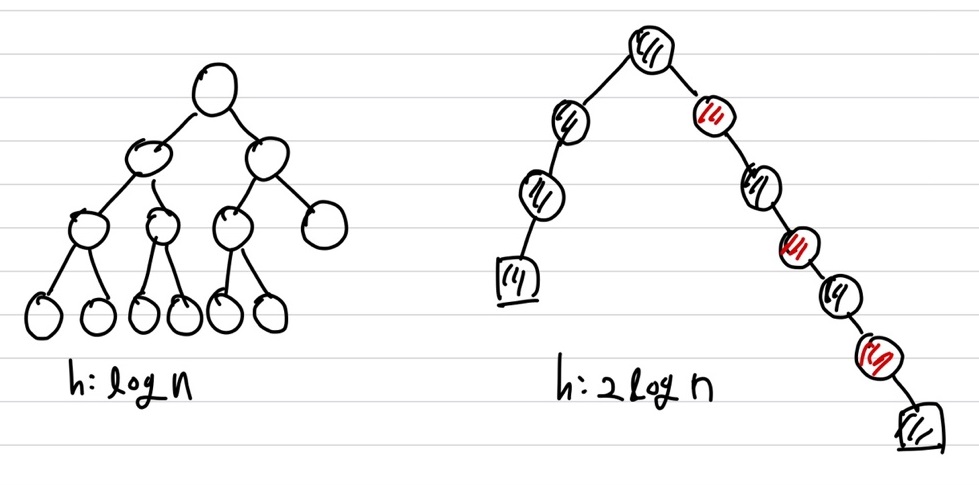 h: log n
h: 2 log n